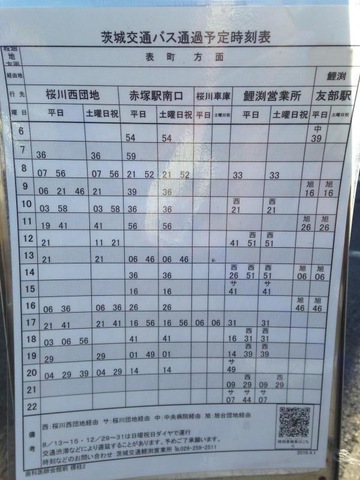 茨城交通バス通過予定時刻表
表町 方面
経由地 鯉渕
行先 桜川西団地 赤塚駅南口 桜川車庫 鯉渕営業所 友部駅
曜日 平日 土曜日祝 平日 土曜日祝 平日 土曜日祝 平日 土曜日祝 平日 土曜日祝
中
6 54 54 39
7 36 36 59
8 07 56 07 56 21 52 21 52 33 33
旭 旭
9 06 21 46 06 21 39 36 16 16
西 西
10 03 58 03 58 36 36 21 21
旭 旭
11 19 41 41 56 56 26 26
西 西 西
12 21 11 21 41 51 51
13 21 21 06 46 06 46
西 西 西 旭 旭
14 36 36 26 51 51 06 06
サ サ
15 36 36 41 41
旭 旭
16 06 36 06 36 26 26 46 46
17 21 41 21 41 16 56 16 56 06 06 31 31
サ
18 03 06 56 41 41 16 31 31
西 西
19 29 29 01 49 01 14 39 39
サ
20 04 29 39 04 29 14 14 49
西 西 西
21 09 29 09 29
サ サ サ
22 07 44 07
備考
西:桜川西団地経由 サ:桜川団地経由 中:中央病院経由 旭:旭台団地経由
8/13~15・12/29~31は日曜祝日ダイヤで運行
交通渋滞などにより遅延することがあります。予めご了承願います。
時刻などのお問い合わせ 茨城交通鯉渕営業所 ℡029-259-2511
歯科医師会館前